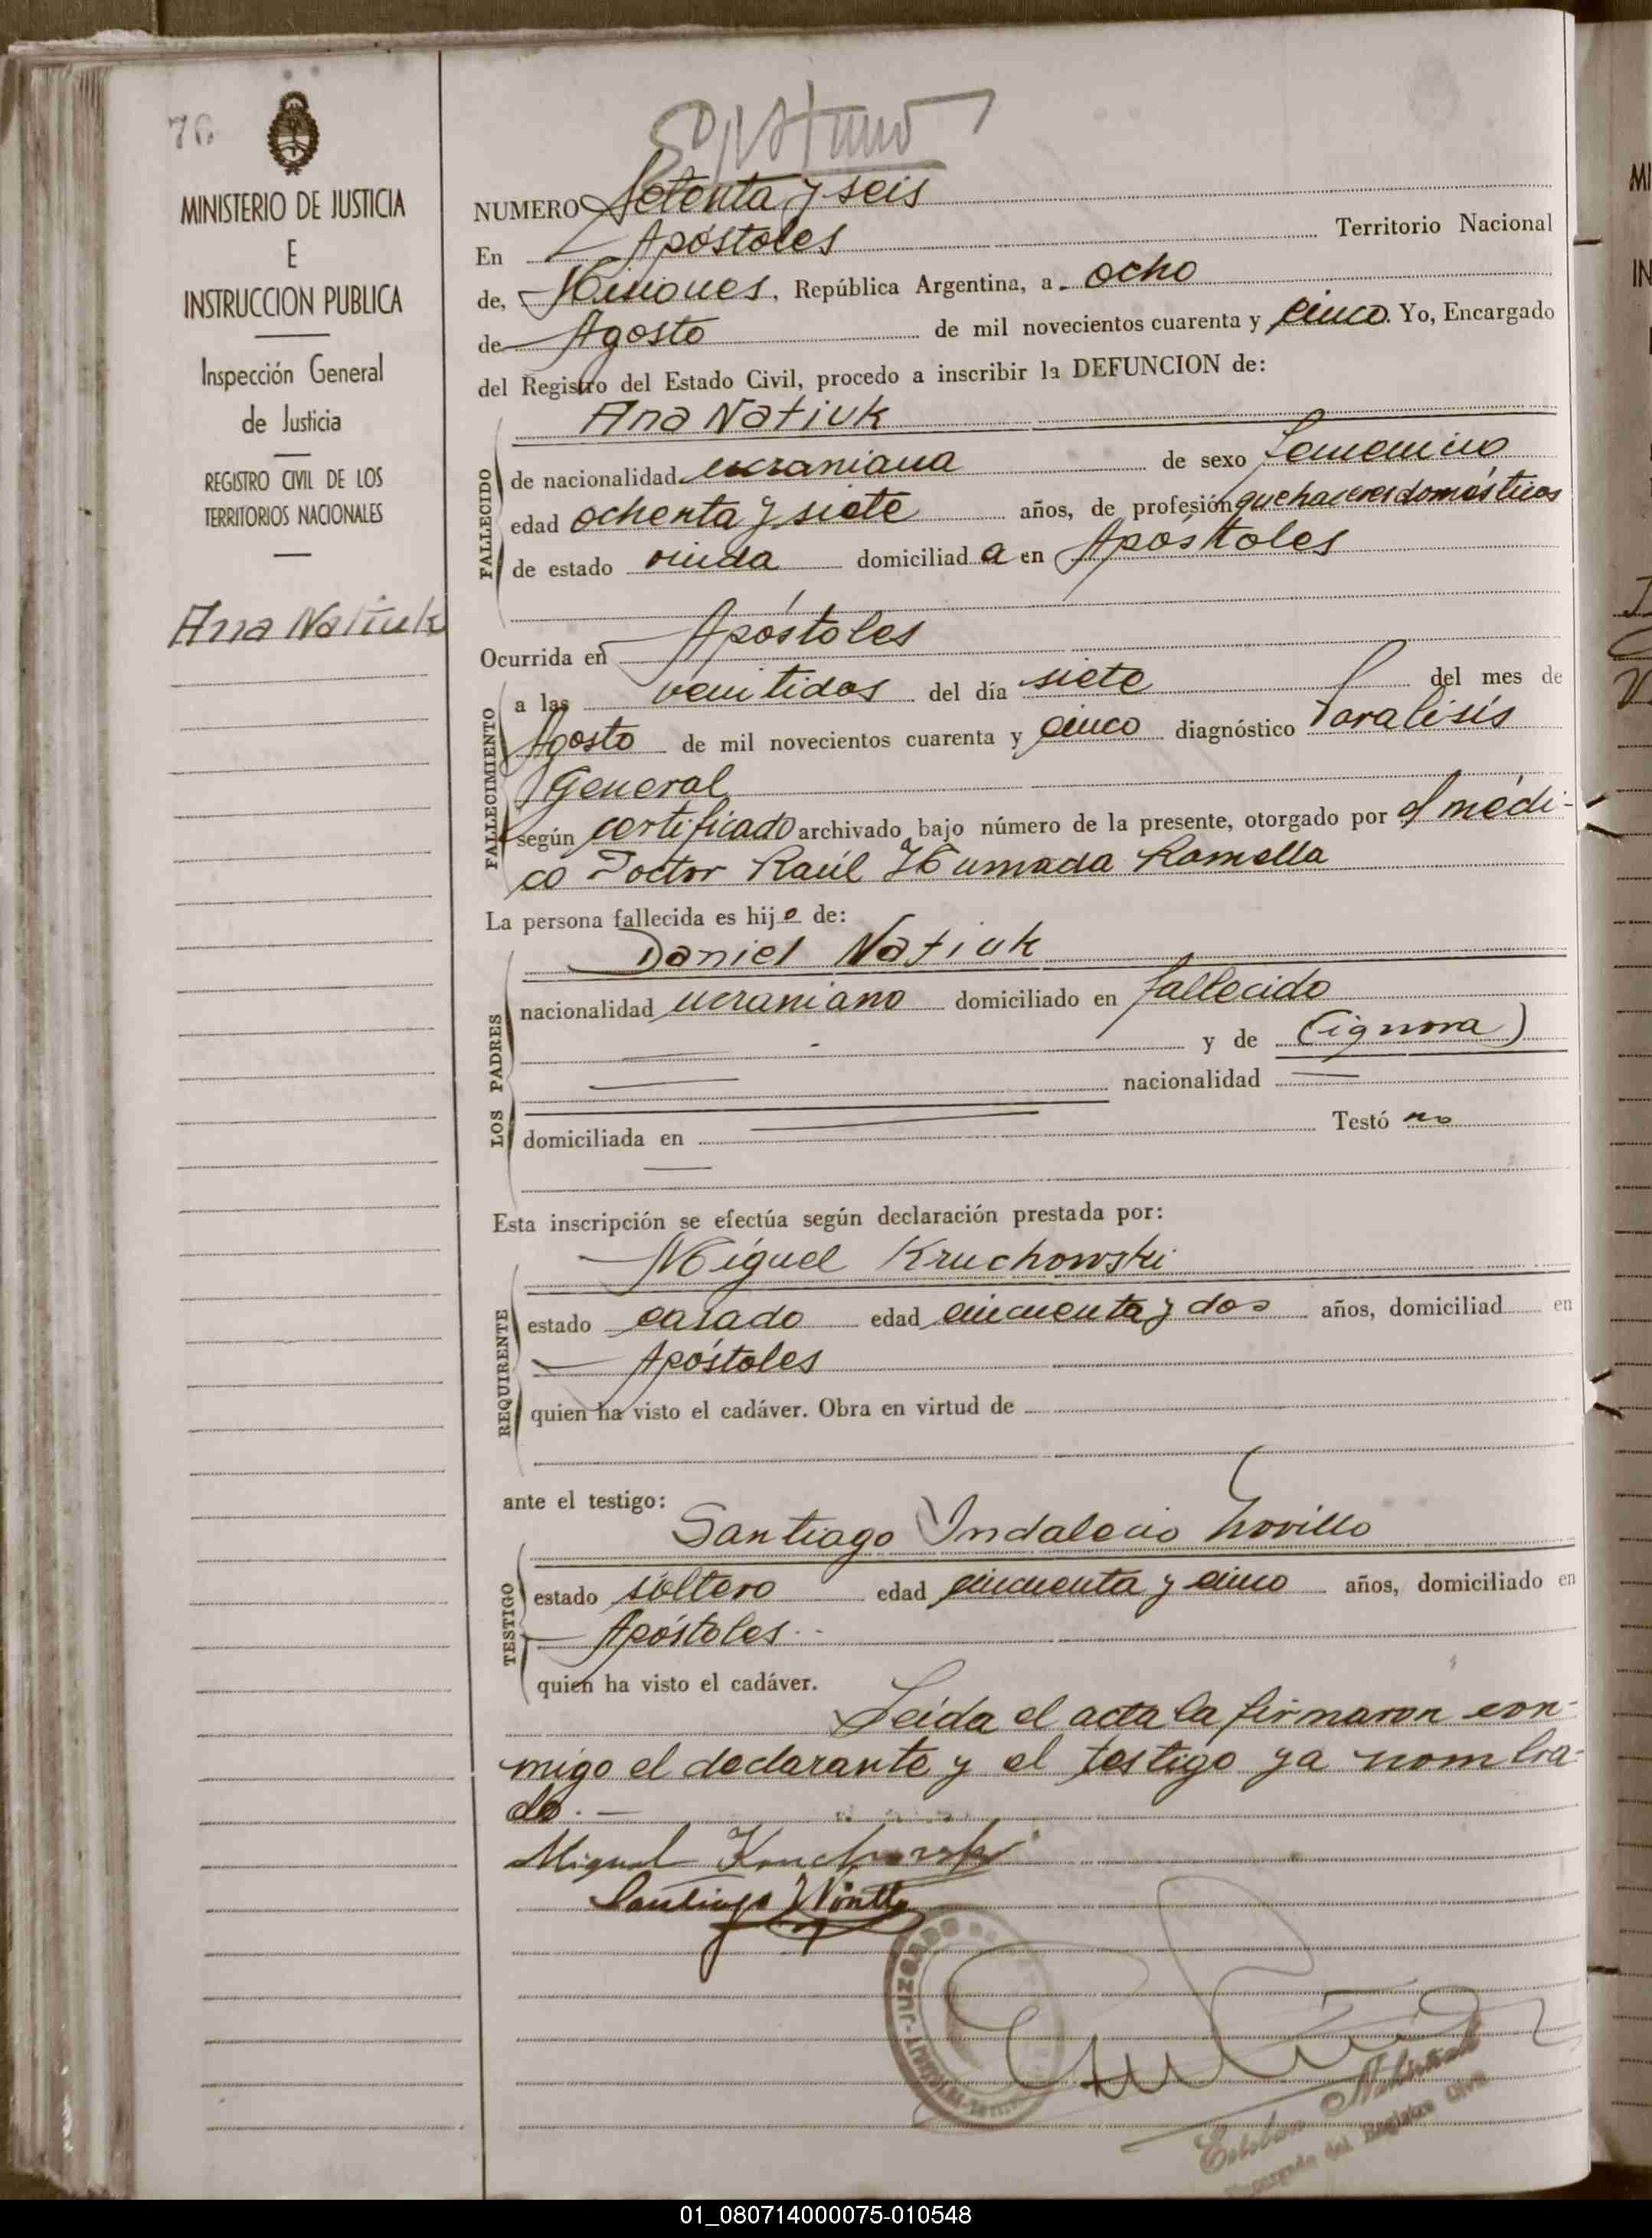 76
MINISTERIO DE JUSTICIA
E
INSTRUCCION PUBLICA
Inspección General
de Justicia
REGISTRO CIVIL DE LOS
TERRITORIOS NACIONALES
Ana Natiuk
NUMERO Setenta y seis
En Apóstoles Territorio Nacional
de, Misiones, República Argentina, a ocho
de Agosto de mil novecientos cuarenta y cinco. Yo, Encargado
del Registro del Estado Civil, procedo a inscribir la DEFUNCION de:
Ana Natiuk
FALLECIDO
de nacionalidad ucraniana de sexo femenino
edad ochenta y siete años, de profesión quehaceres domésticos
de estado viuda domiciliad a en Apóstoles
Ocurrida en Apóstoles
FALLECIMIENTO
a las veintidos del día siete del mes de
Agosto de mil novecientos cuarenta y cinco diagnóstico Paralisis
General
según certificado archivado bajo número de la presente, otorgado por el médi-
co Doctor Raúl Humada Ramella
La persona fallecida es hij a de:
Daniel Natiuk
LOS PADRES
nacionalidad ucraniano domiciliado en fallecido
y de (ignora)
nacionalidad
domiciliada en Testó no
Esta inscripción se efectúa según declaración prestada por:
Miguel Kruchowski
REQUIRENTE
estado casado edad cincuenta y dos años, domiciliad en
Apóstoles
quien ha visto el cadáver. Obra en virtud de
ante el testigo:
Santiago Indalecio
TESTIGO
estado soltero edad cincuenta y cinco años, domiciliado en
Apóstoles
quien ha visto el cadáver.
Leída el acta la firmaron con-
migo el declarante y el testigo ya nombra-
do.
Miguel Kruchowski
Santiago
JUZGADO
Esteban
Encargado del Registro Civil
01_080714000075-010548